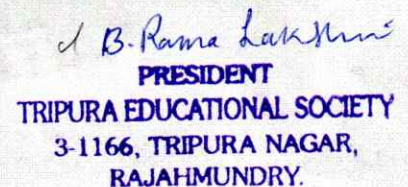 B. Rama Lakshmi
PRESIDENT
TRIPURA EDUCATIONAL SOCIETY
3-1166, TRIPURA NAGAR,
RAJAHMUNDRY.